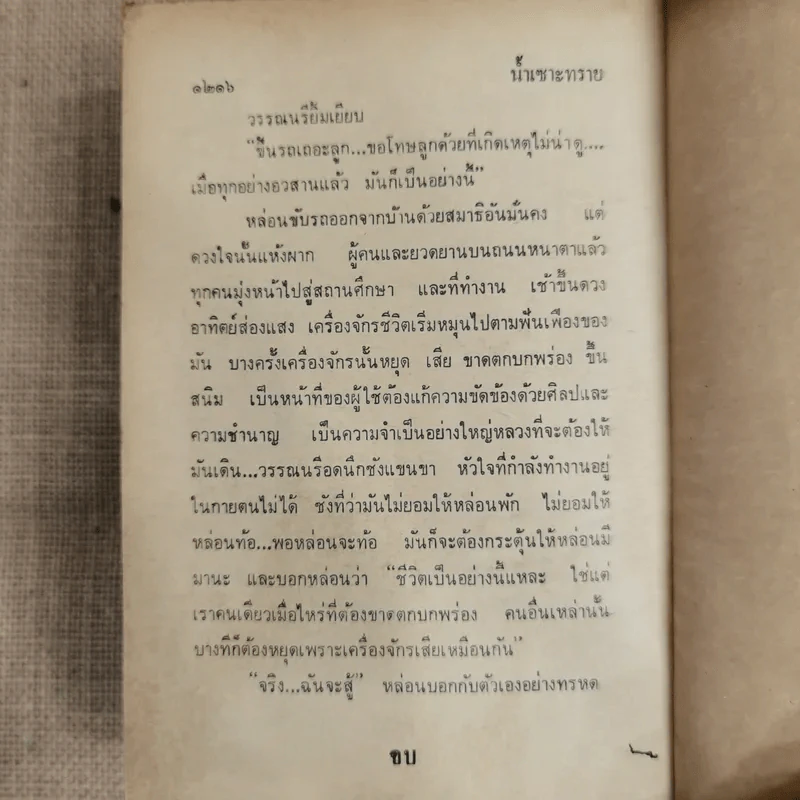 ๑๒๑๖
น้ำเซาะทราย
วรรณนรียิ้มเยียบ
“ขึ้นรถเถอะลูก...ขอโทษลูกด้วยที่เกิดเหตุไม่น่าดู....
เมื่อทุกอย่างอวสานแล้ว มันก็เป็นอย่างนี้”
หล่อนขับรถออกจากบ้านด้วยสมาธิอันมั่นคง แต่
ดวงใจนั้นแห้งผาก ผู้คนและยวดยานบนถนนหนาตาแล้ว
ทุกคนมุ่งหน้าไปสู่สถานศึกษา และที่ทำงาน เช้าขึ้นดวง
อาทิตย์ส่องแสง เครื่องจักรชีวิตเริ่มหมุนไปตามฟันเฟืองของ
มัน บางครั้งเครื่องจักรนั้นหยุด เสีย ขาดตกบกพร่อง ขึ้น
สนิม เป็นหน้าที่ของผู้ใช้ต้องแก้ความขัดข้องด้วยศิลปและ
ความชำนาญ เป็นความจำเป็นอย่างใหญ่หลวงที่จะต้องให้
มันเดิน...วรรณนรีอดนึกชังแขนขา หัวใจที่กำลังทำงานอยู่
ในกายตนไม่ได้ ชังที่ว่ามันไม่ยอมให้หล่อนพัก ไม่ยอมให้
หล่อนท้อ...พอหล่อนจะท้อ มันก็จะต้องกระตุ้นให้หล่อนมี
มานะ และบอกหล่อนว่า “ชีวิตเป็นอย่างนี้แหละ ใช่แต่
เราคนเดียวเมื่อไหร่ที่ต้องขาดตกบกพร่อง คนอื่นเหล่านั้น
บางทีก็ต้องหยุดเพราะเครื่องจักรเสียเหมือนกัน”
“จริง...ฉันจะสู้” หล่อนบอกกับตัวเองอย่างทรหด
จบ